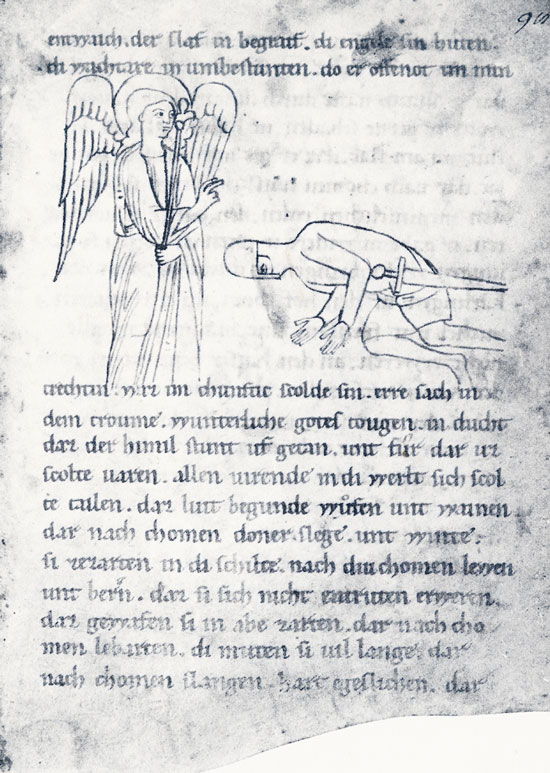 entwuch. der slaf in begreif. di engele sin huten.
di wchtare in umbestunten. do er offenot im min
trechtin. waz im chunftic scolde sin. erre sach in
dem troume. wunterliche gotes tougen. in ducht
daz der himil stunt uf getan. unt für dar uz
scolte uaren. allen uirende in di werlt sich scol
te tailen. daz lut begunde wůfen unt wainen
dar nach chomen doner slege. unt winte.
si zezarten in di schilte. nach diu chomen lewen
unt bern. daz si sich nicht entruten erweren.
daz gewafen si in abe zarten. dar nach cho
men lebarten. di muten si uil lange. dar
nach chomen slangen. hart egeslichen. dar